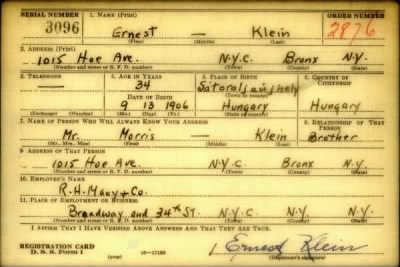 SERIAL NUMBER 1. NAME (Print) ORDER NUMBER
3096 Ernest — Klein 2876
(First) (Middle) (Last)
2. ADDRESS (Print)
1015 Hoe Ave. N.Y.C. Bronx N.Y.
(Number and street or R. F. D. number) (Town) (County) (State)
3. TELEPHONE 4. AGE IN YEARS 5. PLACE OF BIRTH 6. COUNTRY OF CITIZENSHIP
— 34 Satoraljaujhely
DATE OF BIRTH (Town or county)
9 13 1906 Hungary Hungary
(Exchange) (Number) (Mo.) (Day) (Yr.) (State or country)
7. NAME OF PERSON WHO WILL ALWAYS KNOW YOUR ADDRESS 8. RELATIONSHIP OF THAT PERSON
Mr. Morris — Klein Brother
(Mr., Mrs., Miss) (First) (Middle) (Last)
9. ADDRESS OF THAT PERSON
1015 Hoe Ave. N.Y.C. Bronx N.Y.
(Number and street or R. F. D. number) (Town) (County) (State)
10. EMPLOYER'S NAME
R.H. Macy & Co.
11. PLACE OF EMPLOYMENT OR BUSINESS
Broadway and 34th St. N.Y.C. N.Y. N.Y.
(Number and street or R. F. D. number) (Town) (County) (State)
I AFFIRM THAT I HAVE VERIFIED ABOVE ANSWERS AND THAT THEY ARE TRUE.
REGISTRATION CARD
D. S. S. Form 1 (over) Ernest Klein
(Registrant's signature)